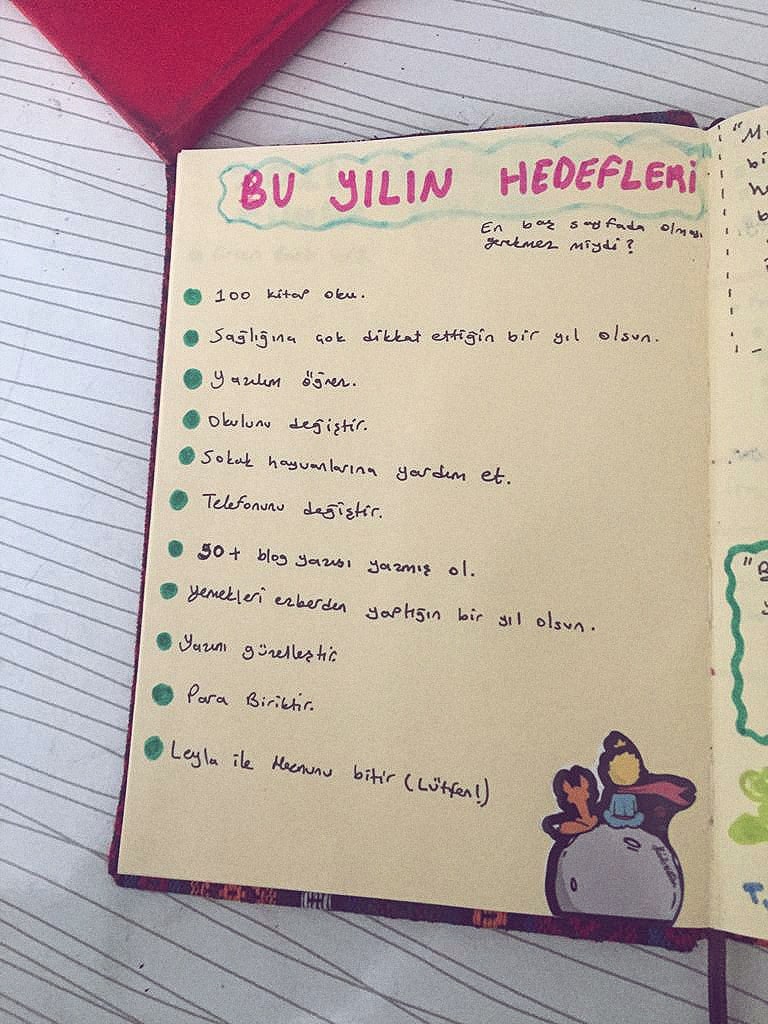 BU YILIN HEDEFLERİ
En baş sayfada olması
gerekmez miydi?
100 kitap oku.
Sağlığına çok dikkat ettiğin bir yıl olsun.
Yazılım öğren.
Okulunu değiştir.
Sokak hayvanlarına yardım et.
Telefonunu değiştir.
50+ blog yazısı yazmış ol.
Yemekleri ezberden yaptığın bir yıl olsun.
Yazını güzelleştir.
Para Biriktir.
Leyla ile Mecnunu bitir (Lütfen!)